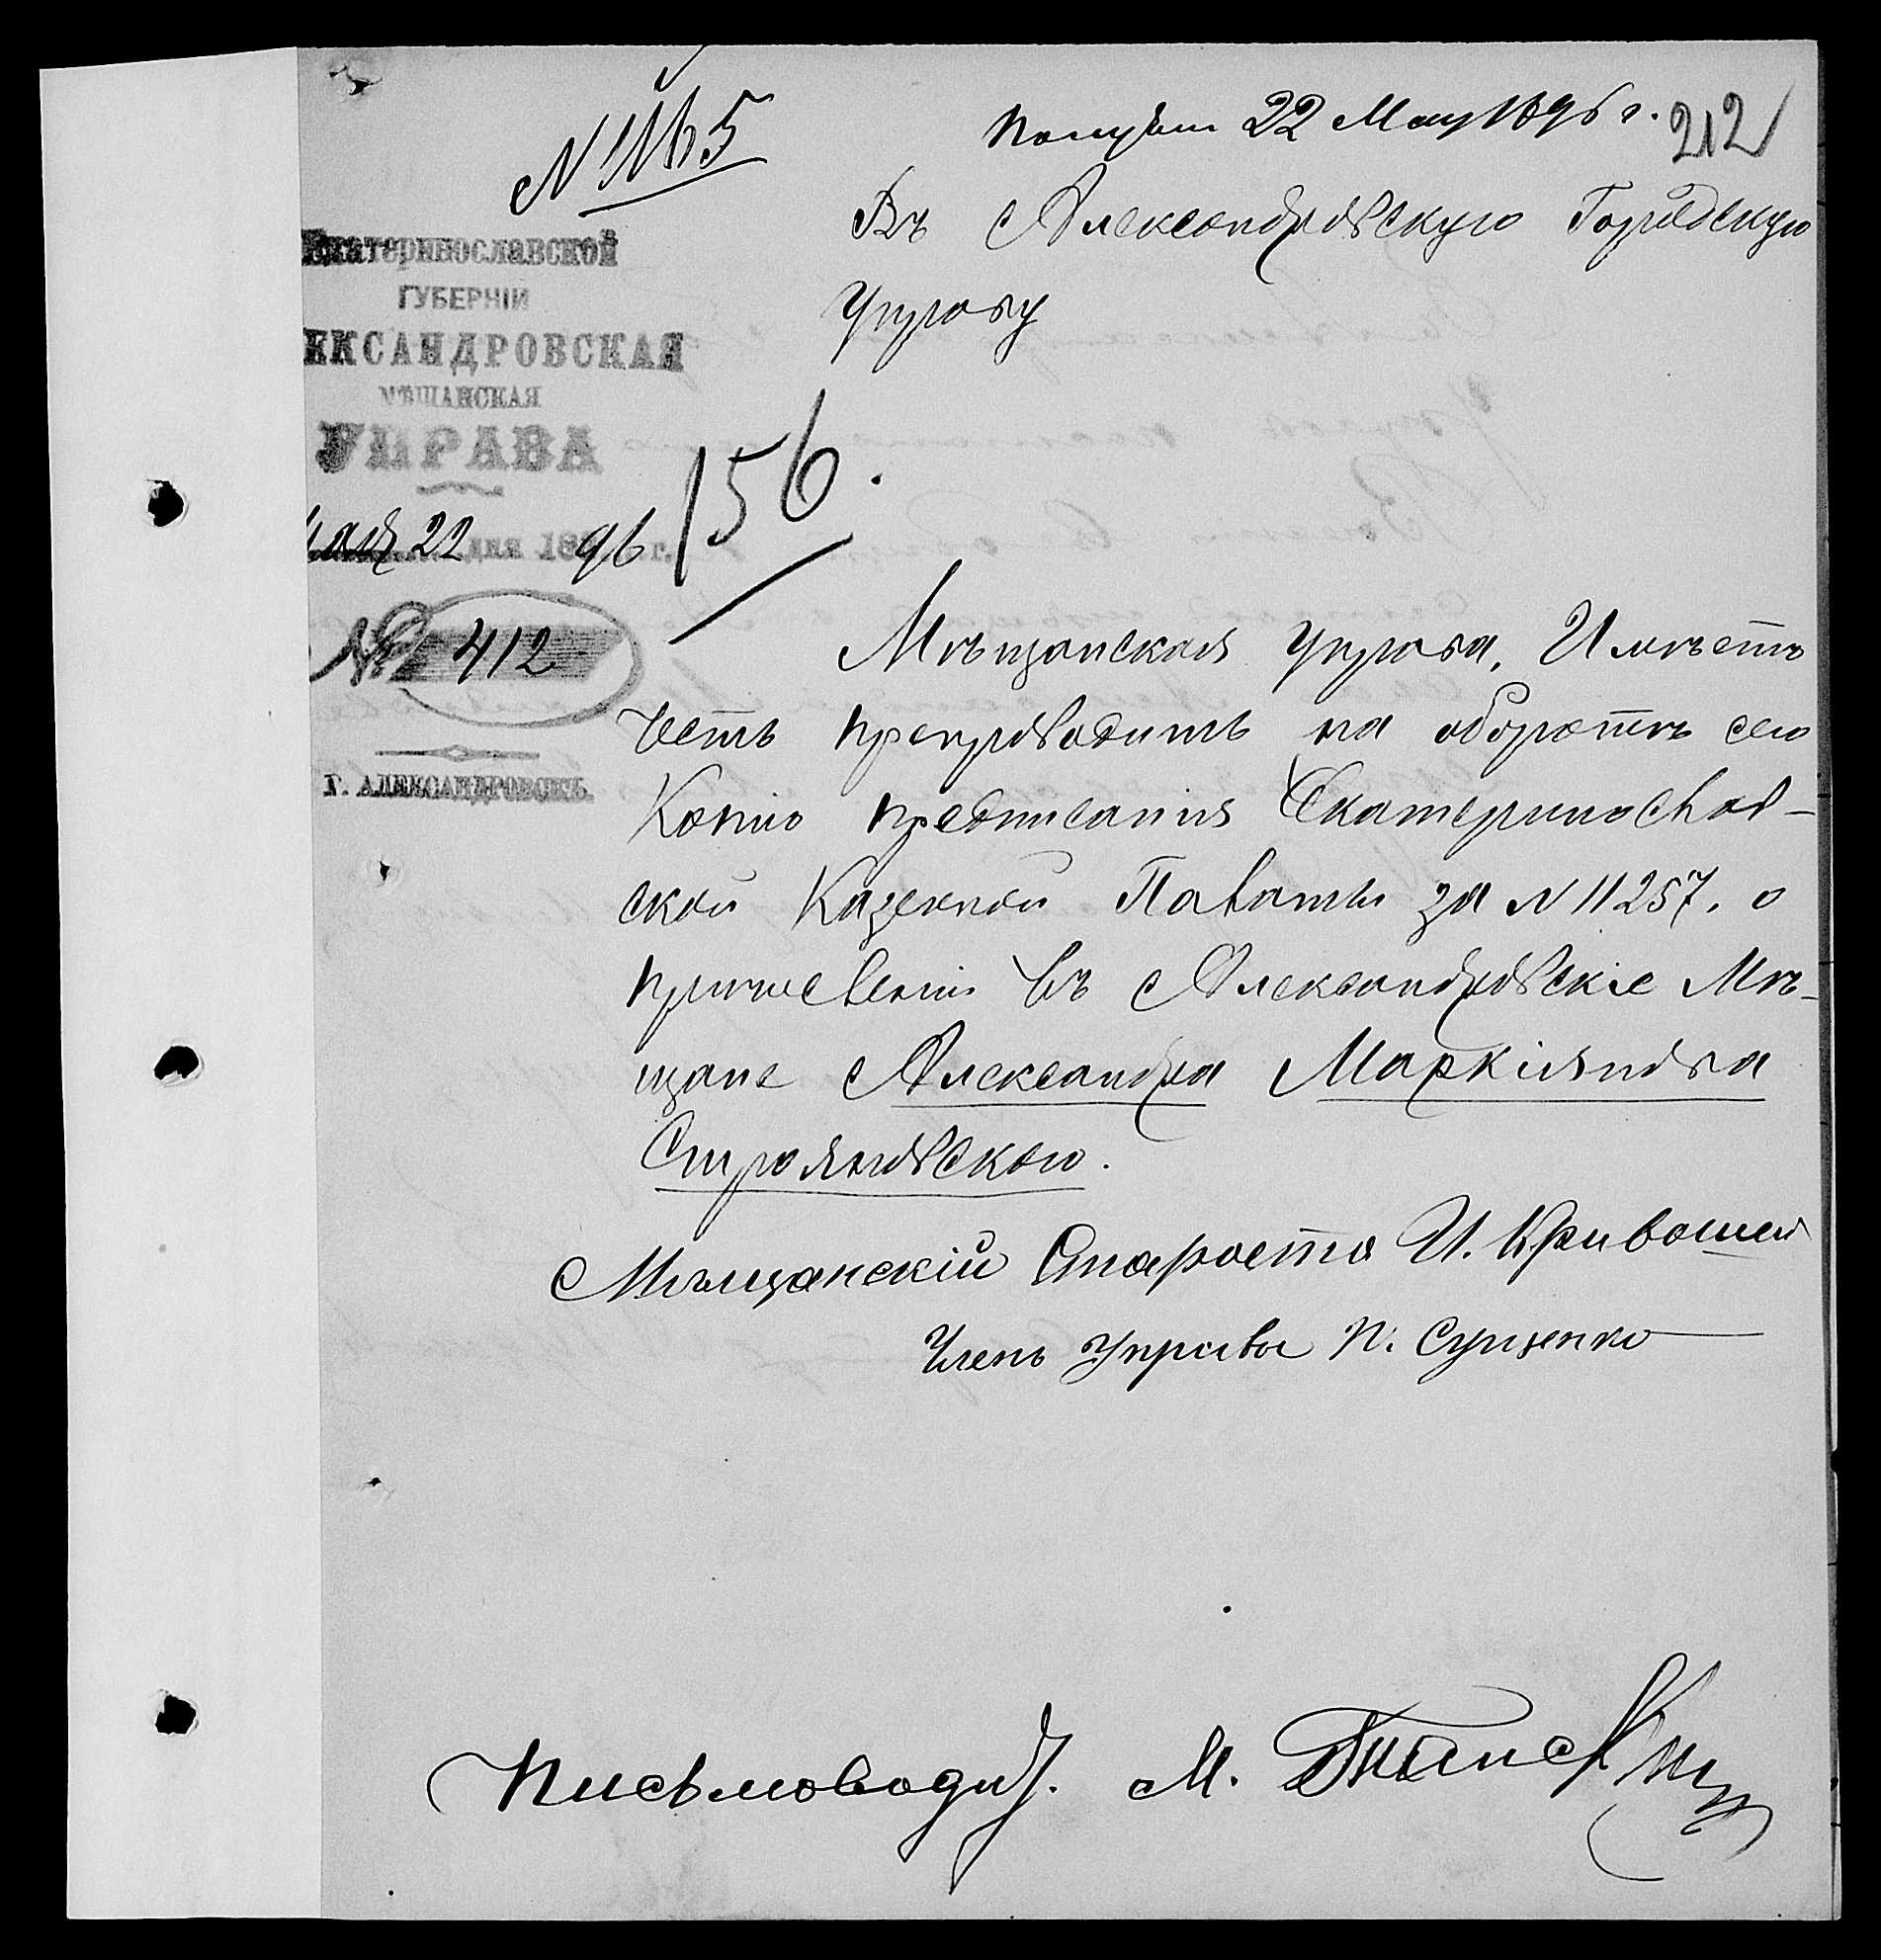 № 1165
Получен 22 Мая 1896 г.
212
Въ Александровскую Городскую
Управу
Екатеринославской
ГУБЕРНІИ
ЕКСАНДРОВСКАЯ
МѢЩАНСКАЯ
УПРАВА
156.
мая 22 дня 1896 г.
№ 412
Г. АЛЕКСАНДРОВСКЪ.
Мѣщанская Управа, Имѣетъ
честь препроводить на оборотѣ сего
Копію предписанія Екатеринослав-
ской Казенной Палаты за № 11257. о
причисленіи въ Александровскіе Мѣ-
щане Александра Маркіянова
Строяновского.
Мѣщанскій Староста И. Кривошей
Членъ Управы П. Сущенко
Письмовод. М.